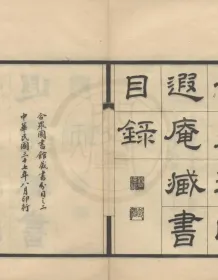 遐庵藏書
目錄
合眾圖書館藏書分目之二
中華民國三十七年八月印行